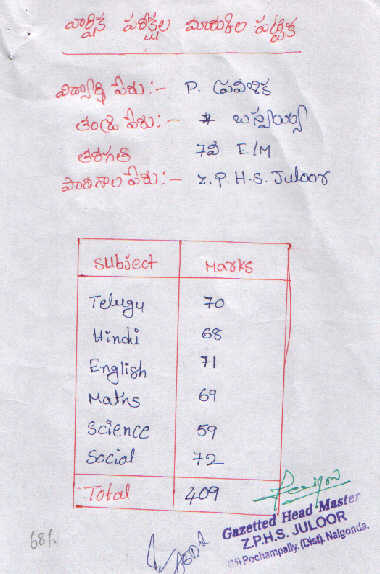 వార్షిక పరీక్షల మార్కుల పట్టిక
విద్యార్థి పేరు:- P.
తండ్రి పేరు:-
తరగతి 7వ E/M
పాఠశాల పేరు:- Z.P.H.S. Juloor
Subject Marks
Telugu 70
Hindi 68
English 71
Maths 69
Science 59
Social 72
Total 409
68%
Gazetted Head Master
Z.P.H.S. JULOOR
Pochampally, (Dist). Nalgonda.